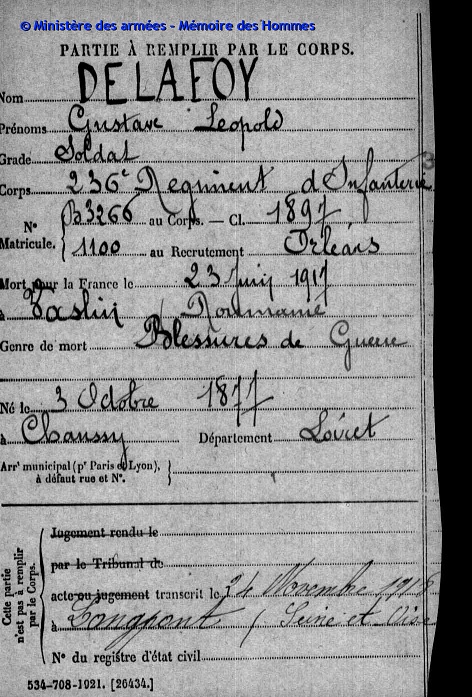 © Ministère des armées - Mémoire des Hommes
PARTIE À REMPLIR PAR LE CORPS.
Nom DELAFOY
Prénoms Gustave Leopold
Grade Soldat
Corps 236e Regiment d'Infanterie
N° Matricule. { B3266 au Corps. — Cl. 1897
1100 au Recrutement Orléans
Mort pour la France le 23 Juin 1917
à Vaslin Roumanie
Genre de mort Blessures de Guerre
Né le 3 Octobre 1877
à Chaussy Département Loiret
Arrt municipal (pr Paris et Lyon), à défaut rue et N°. }
Cette partie n'est pas à remplir par le Corps.
Jugement rendu le
par le Tribunal de
acte ou jugement transcrit le 24 Novembre 191
à Longpont (Seine et Oise
N° du registre d'état civil
534-708-1921. [26434.]